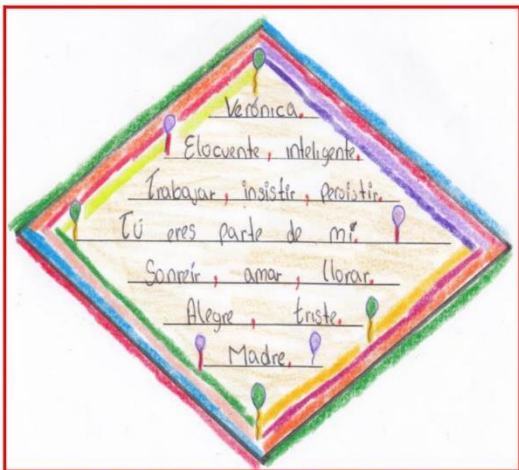 Verónica.
Elocuente, inteligente.
Trabajar, insistir, persistir.
Tú eres parte de mí.
Sonreír, amar, llorar.
Alegre, triste.
Madre.